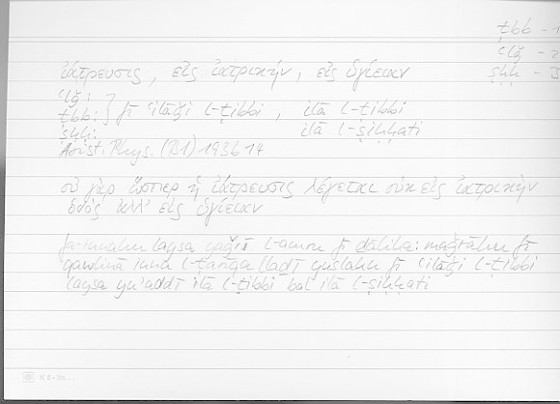 ṭbb – 1
ʿlǧ – 2
ṣḥḥ – 3
ἰάτρευσις, εἰς ἰατρικήν, εἰς ὑγίειαν
ʿlǧ:
ṭbb: } fī ʿilāǧi l-ṭibbi, ilā l-ṭibbi
ṣḥḥ: ilā l-ṣiḥḥati
Arist. Phys. (B1) 193b14
οὐ γὰρ ὥσπερ ἡ ἰάτρευσις λέγεται οὐκ εἰς ἰατρικὴν
ὁδὸς ἀλλ’ εἰς ὑγίειαν
fa-innahu laysa yaǧrī l-amru fī ḏālika: maǧrāhu fī
qawlinā inna l-ṭarīqa llaḏī yuslaku fī ʿilāǧi l-ṭibbi
laysa yuʾaddī ilā l-ṭibbi bal ilā l-ṣiḥḥati